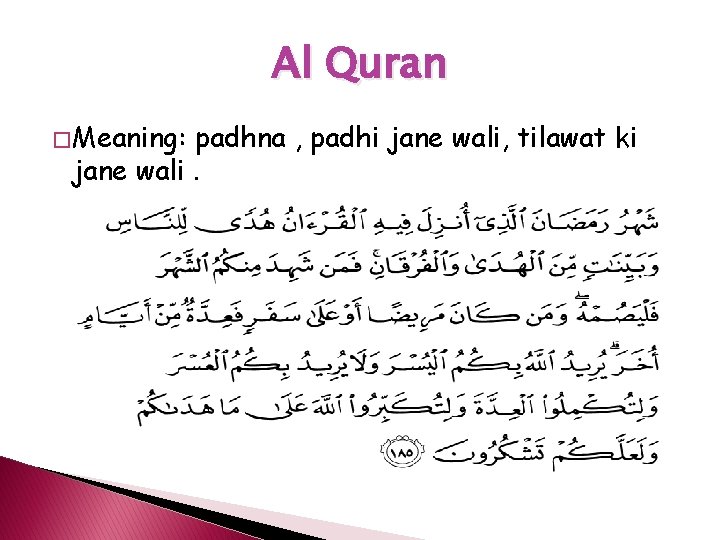 Al Quran
□Meaning: padhna , padhi jane wali, tilawat ki
jane wali .
شَهْرُ رَمَضَانَ ٱلَّذِىٓ أُنزِلَ فِيهِ ٱلْقُرْءَانُ هُدًى لِّلنَّاسِ
وَبَيِّنَٰتٍ مِّنَ ٱلْهُدَىٰ وَٱلْفُرْقَانِ ۚ فَمَن شَهِدَ مِنكُمُ ٱلشَّهْرَ
فَلْيَصُمْهُ ۖ وَمَن كَانَ مَرِيضًا أَوْ عَلَىٰ سَفَرٍ فَعِدَّةٌ مِّنْ أَيَّامٍ
أُخَرَ ۗ يُرِيدُ ٱللَّهُ بِكُمُ ٱلْيُسْرَ وَلَا يُرِيدُ بِكُمُ ٱلْعُسْرَ
وَلِتُكْمِلُوا۟ ٱلْعِدَّةَ وَلِتُكَبِّرُوا۟ ٱللَّهَ عَلَىٰ مَا هَدَىٰكُمْ
وَلَعَلَّكُمْ تَشْكُرُونَ ۝١٨٥